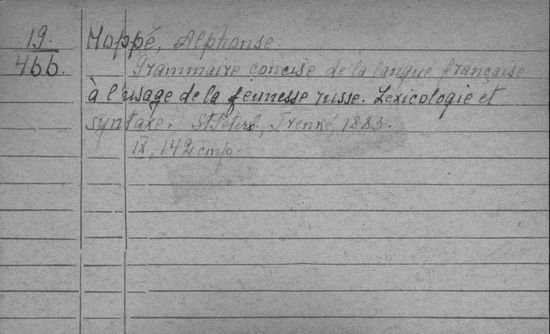 19. Hoppé, Alphonse.
466. Grammaire concise de la langue française
à l'usage de la jeunesse russe. Lexicologie et
syntaxe. St Peterb., Trenké, 1883.
IX, 142 стр.